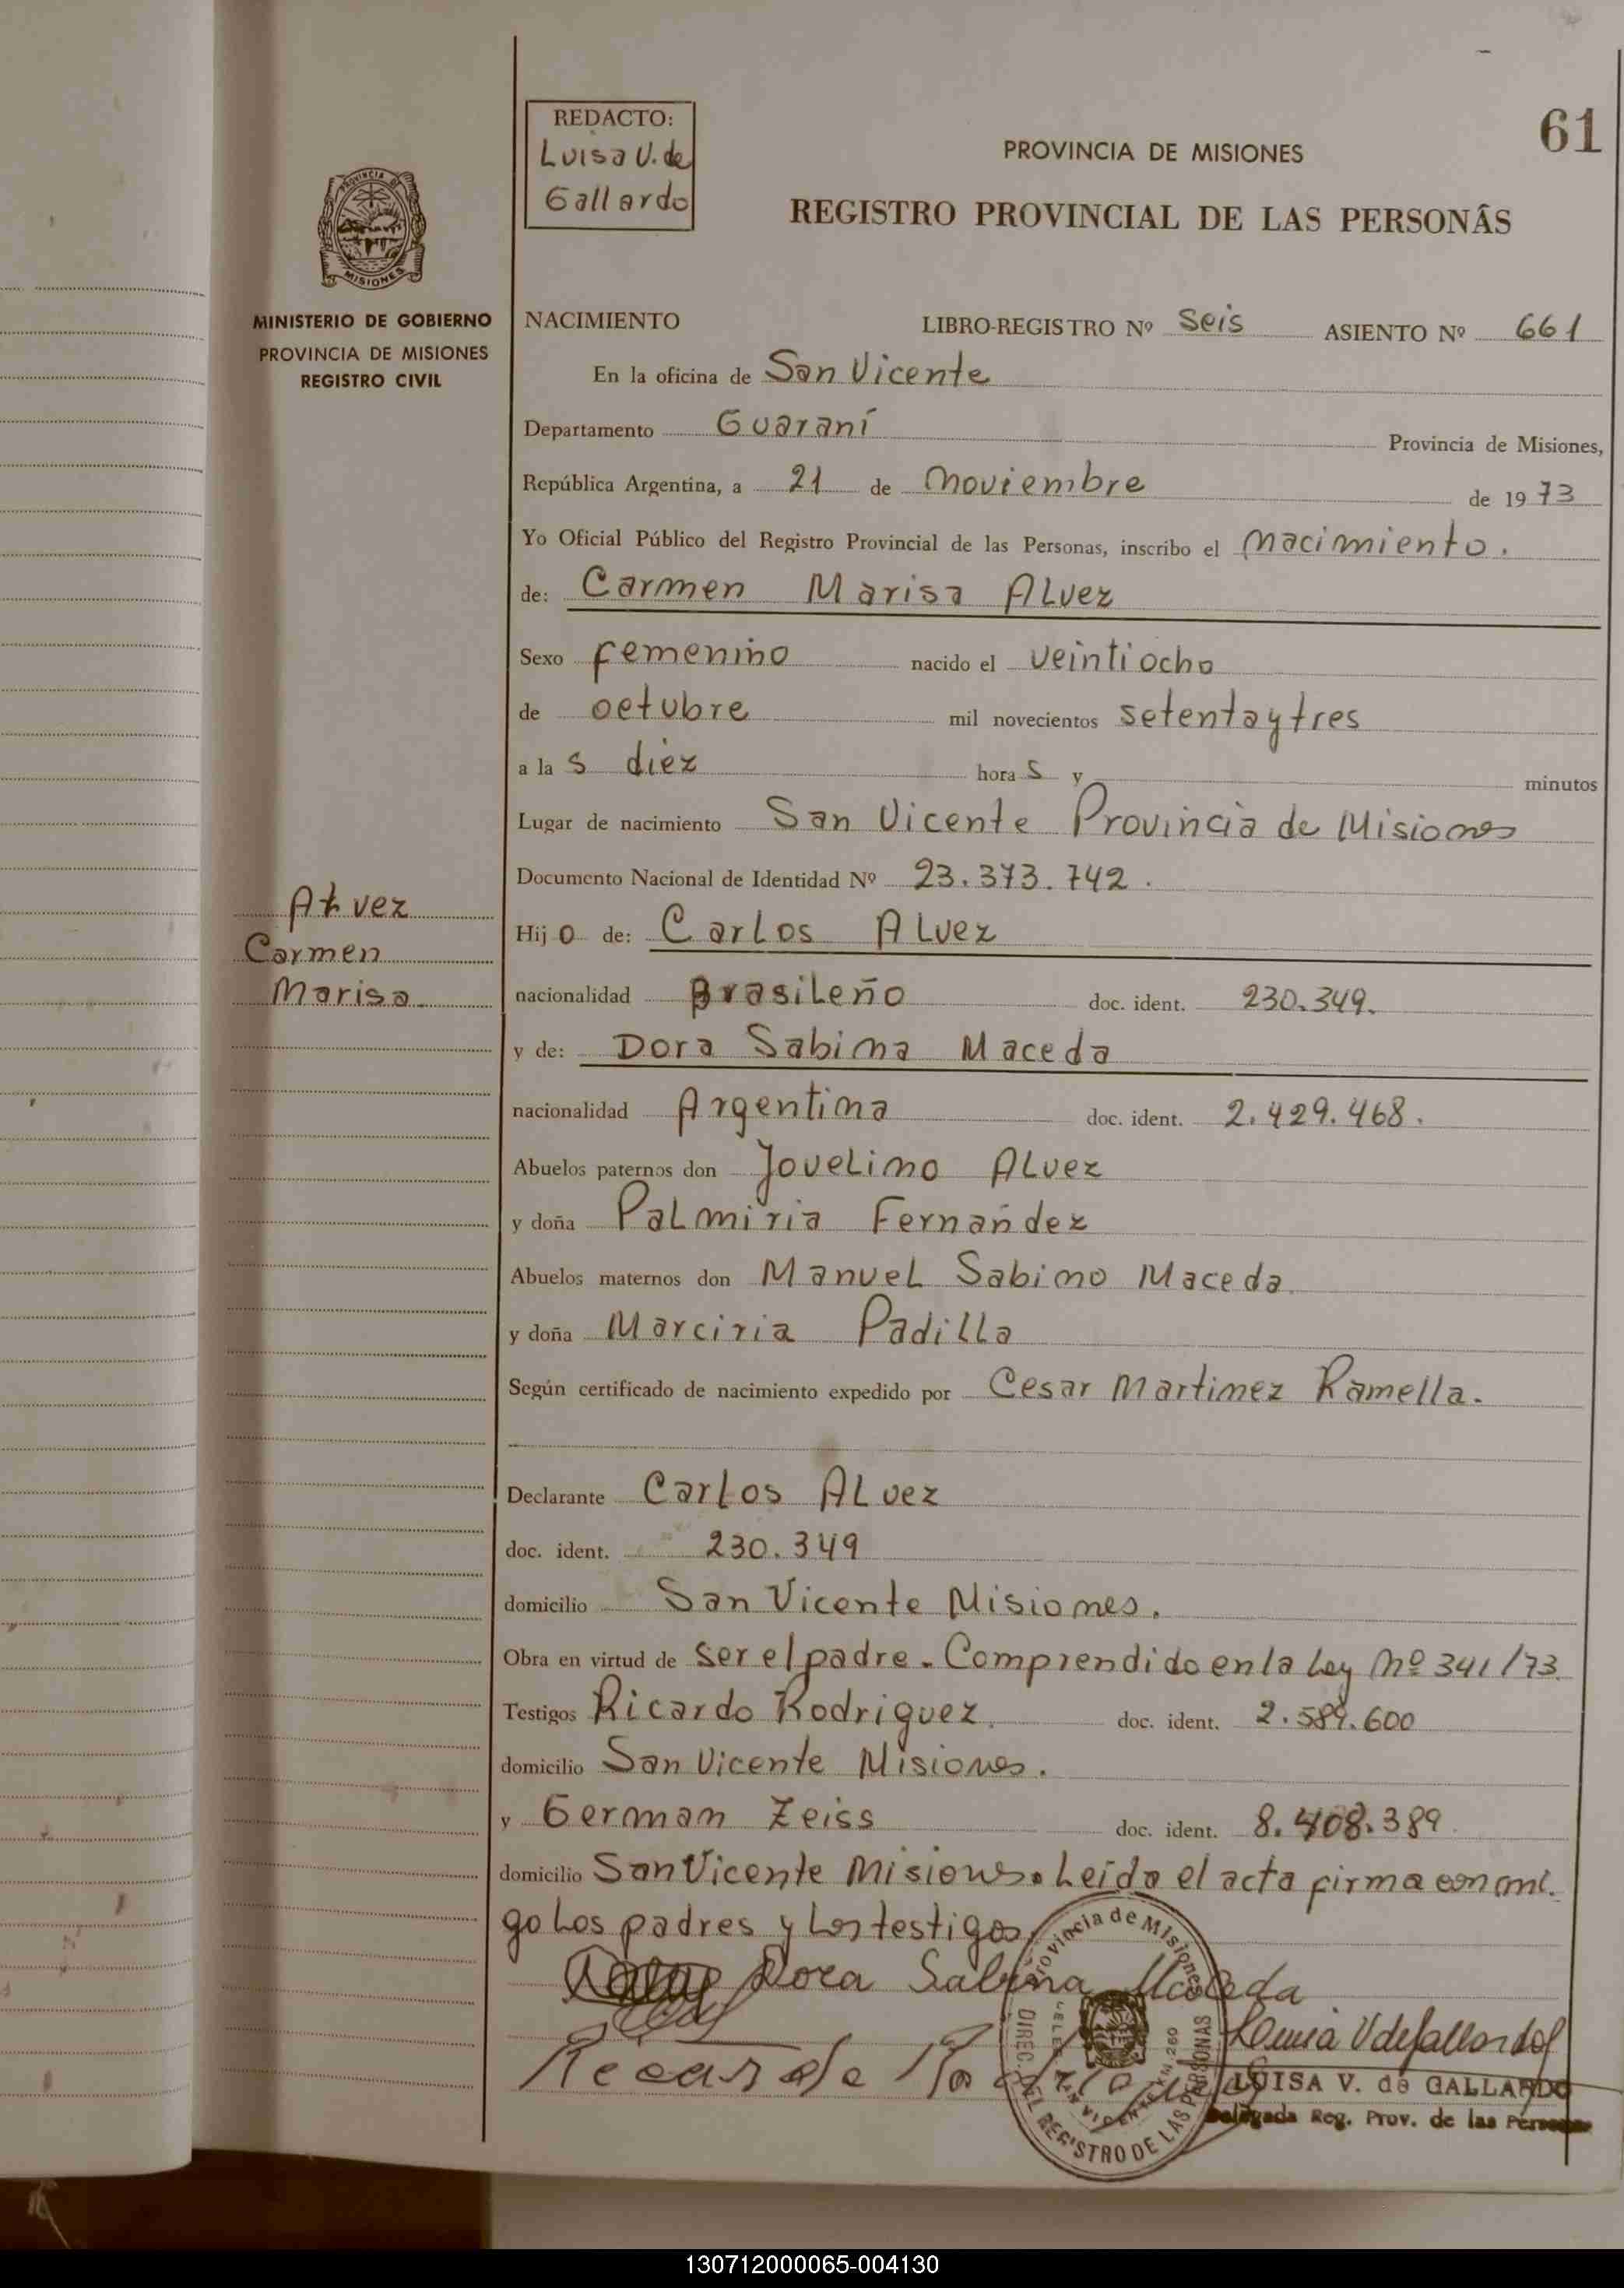 REDACTO:
Luisa V. de
Gallardo
61
PROVINCIA DE MISIONES
REGISTRO PROVINCIAL DE LAS PERSONAS
PROVINCIA DE
MISIONES
MINISTERIO DE GOBIERNO
PROVINCIA DE MISIONES
REGISTRO CIVIL
NACIMIENTO LIBRO-REGISTRO Nº Seis ASIENTO Nº 661
En la oficina de San Vicente
Departamento Guaraní Provincia de Misiones,
República Argentina, a 21 de noviembre de 1973
Yo Oficial Público del Registro Provincial de las Personas, inscribo el nacimiento.
de: Carmen Marisa Alvez
Sexo femenino nacido el veintiocho
de octubre mil novecientos setentaytres
a la s diez hora s y minutos
Lugar de nacimiento San Vicente Provincia de Misiones
Documento Nacional de Identidad Nº 23.373.742.
Alvez
Carmen
Marisa
Hijo de: Carlos Alvez
nacionalidad Brasileño doc. ident. 230.349.
y de: Dora Sabina Maceda
nacionalidad Argentina doc. ident. 2.429.468.
Abuelos paternos don Jovelino Alvez
y doña Palmiria Fernández
Abuelos maternos don Manuel Sabino Maceda.
y doña Marciria Padilla
Según certificado de nacimiento expedido por Cesar Martinez Ramella.
Declarante Carlos Alvez
doc. ident. 230.349
domicilio San Vicente Misiones.
Obra en virtud de ser el padre. Comprendido en la Ley nº 341/73.
Testigos Ricardo Rodriguez. doc. ident. 2.589.600
domicilio San Vicente Misiones.
y German Zeiss doc. ident. 8.408.389.
domicilio San Vicente Misiones. Leída el acta firma conmi.
go los padres y los testigos
Dora Sabina Maceda
Luisa V de Gallardo
Ricardo Rodriguez
Provincia de Misiones
DIREC. DEL REGISTRO DE LAS PERSONAS
SAN VICENTE KM. 260
LUISA V. de GALLARDO
Delegada Reg. Prov. de las Personas
130712000065-004130